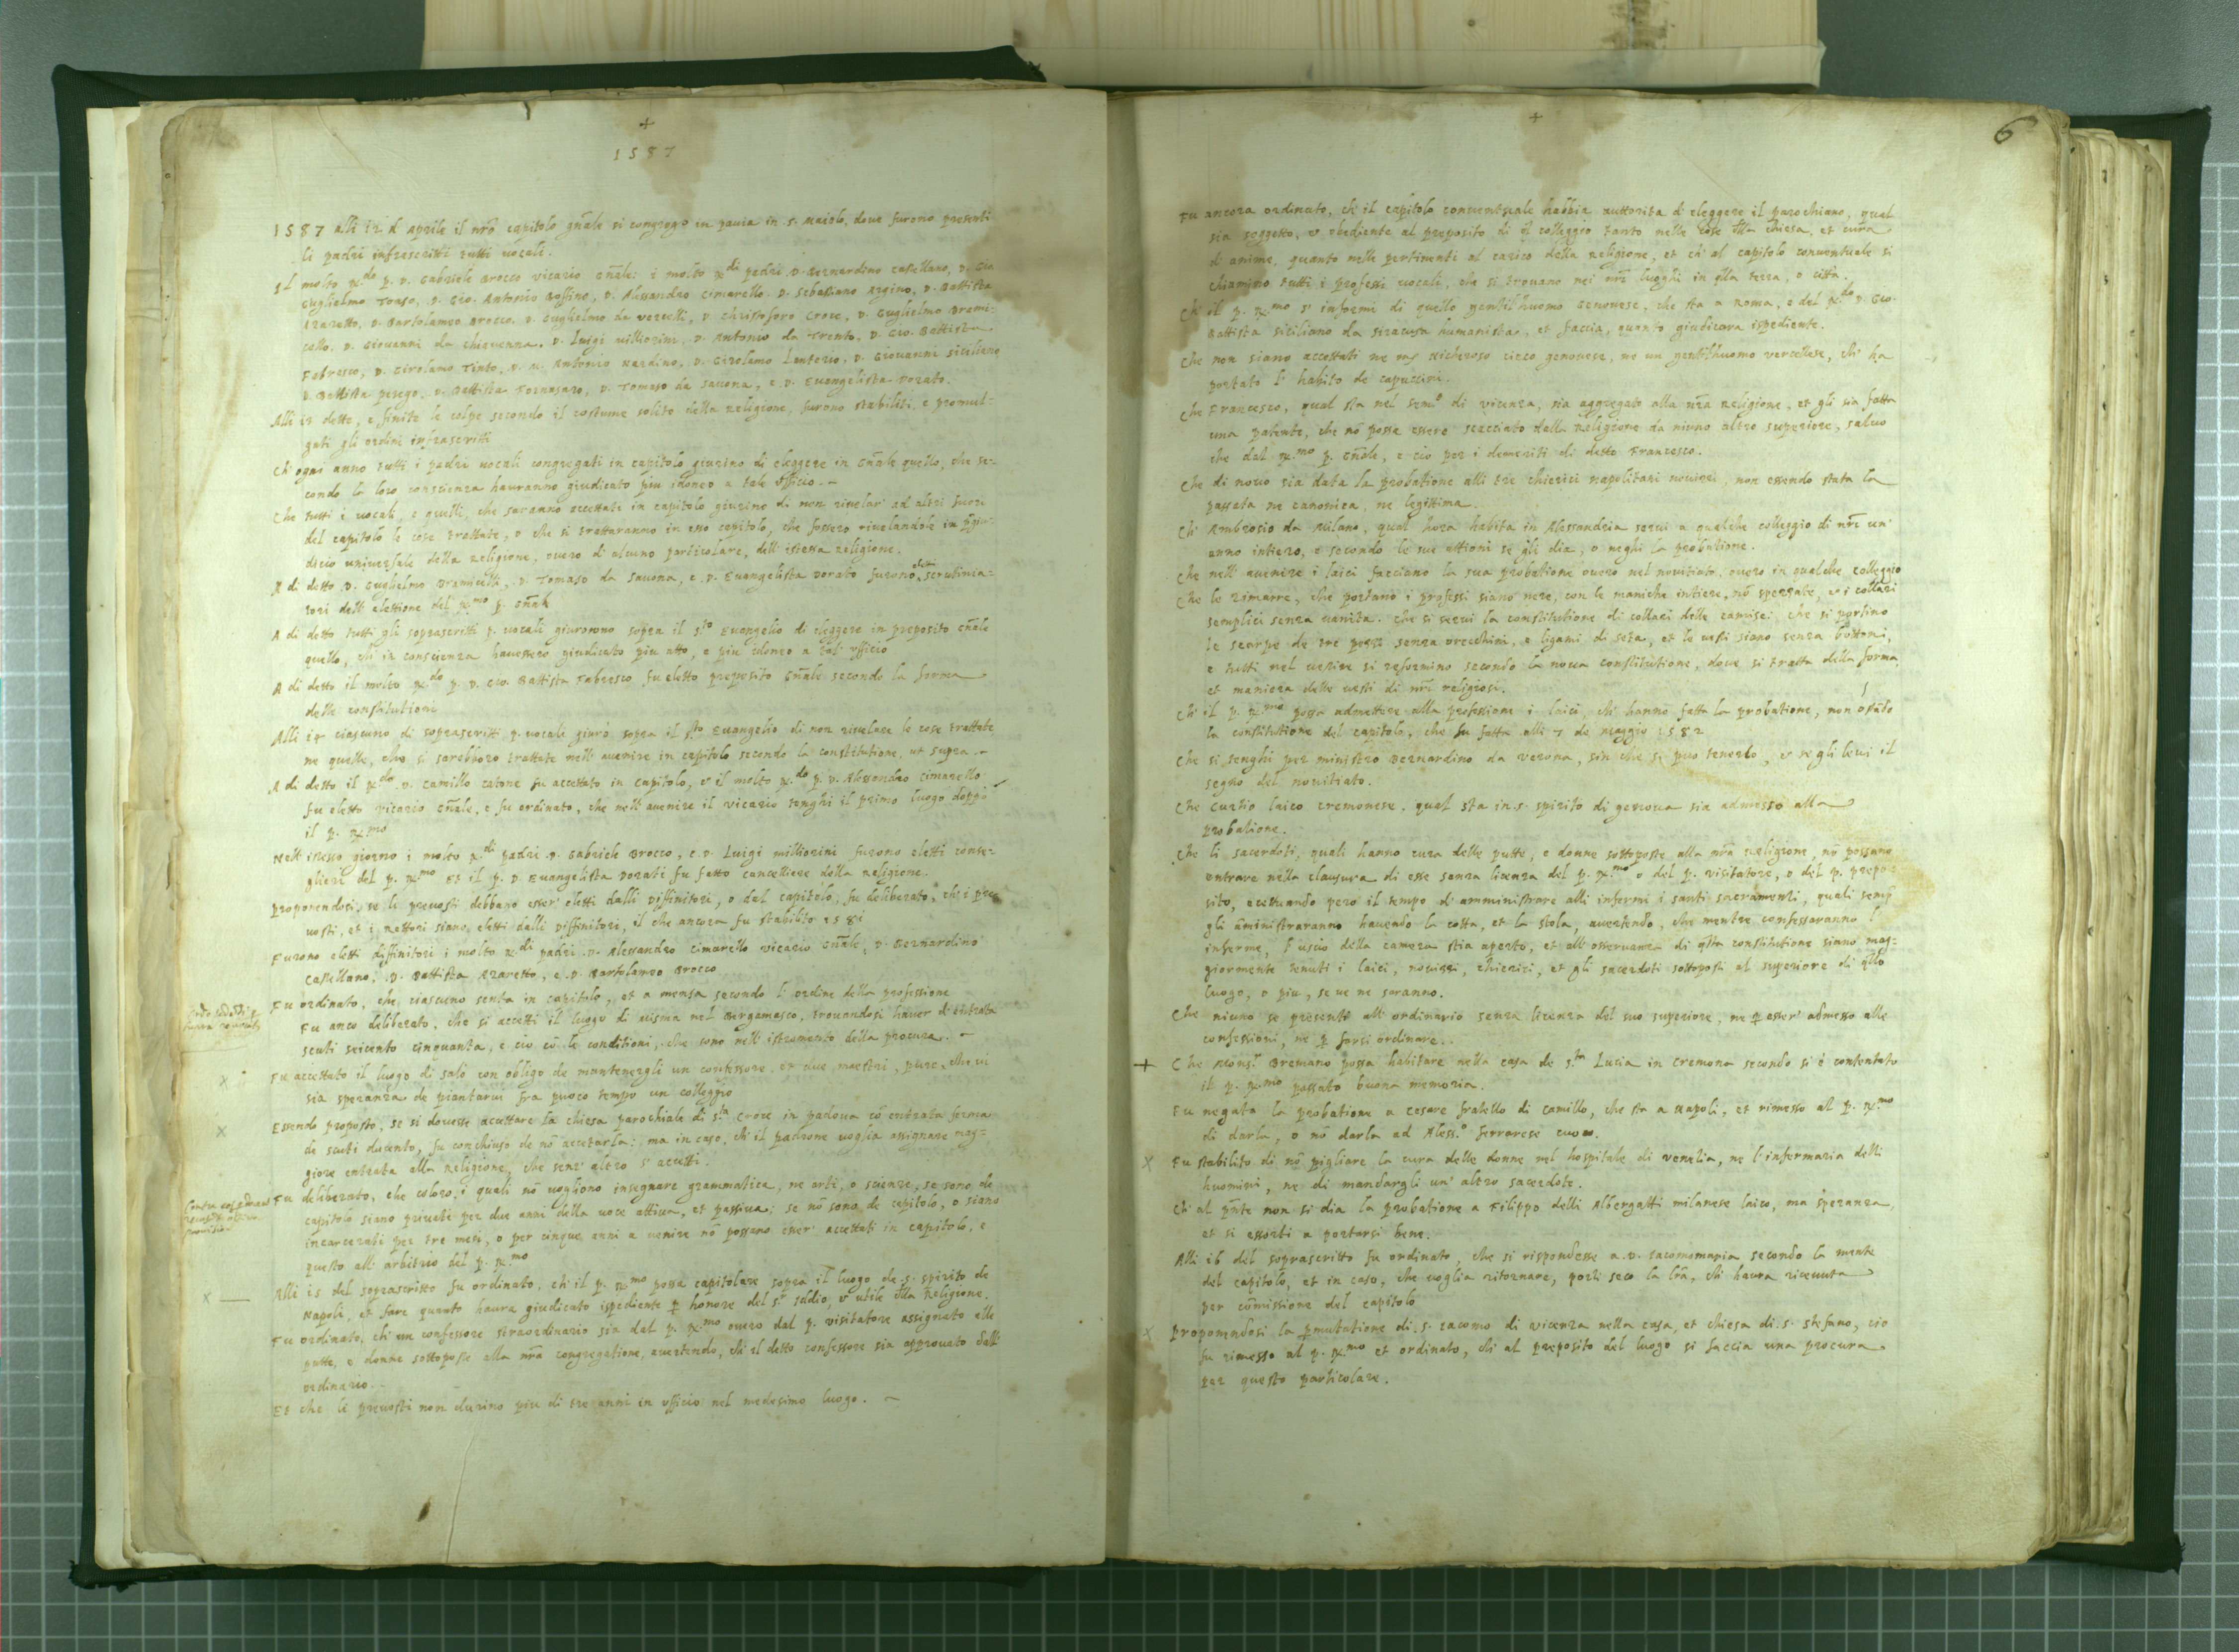 +
1587
1587 alli 12 d'Aprile il nrõ capitolo gñale si congregò in pavia in s. Maiolo, dove furono presenti
li padri infrascritti tutti vocali.
Il molto R.do p. D. Gabriele Brocco vicario Gñale: i molto R.di padri D. Bernardino Castellano, D. Gio
Guglielmo Tonso, D. Gio. Antonio Bollino, D. Alessandro Cimarello. D. Sebastiano Argino, D. Battista
D. Bartolameo Brocco. D. Guglielmo da vercelli, D. Christoforo Croce, D. Guglielmo Brami-
cello, D. Giovanni da chiavenna. D. Luigi milliorini, D. Antonio da Trento, D. Gio. Battista
Fabresco, D. Girolamo Tinto, D. M. Antonio Nardino, D. Girolamo Lenterio, D. Giovanni siciliano
D. Battista perego, D. Battista Fornasaro, D. Tomaso da Savona, e D. Evangelista Dorato.
Alli 13 dette, e finite le colpe secondo il costume solito della Religione, furono stabiliti, e promul-
gati gli ordini infrascritti
Ch' ogni anno tutti i padri vocali congregati in capitolo giurino di eleggere in Gñale quello, che se-
condo la loro conscienza hauranno giudicato piu idoneo a tale officio.
Che tutti i vocali, e quelli, che saranno accettati in capitolo giurino di non rivelar' ad altri fuori
del capitolo le cose trattate, o che si trattaranno in esso capitolo, che fossero rivelandole in pgiu-
dicio universale della Religione, overo di alcuno particolare, dell' istessa religione.
A di detto D. Guglielmo Bramicelli, D. Tomaso da Savona, e D. Evangelista Dorato furono eletti scrutinia-
tori dell' elettione del R.mo p. Gñale
A di detto tutti gli soprascritti p. vocali giurorono sopra il s.to Evangelio di eleggere in preposito Gñale
quello, ch' in conscienza havessero giudicato piu atto, e piu idoneo a tal' ufficio
A di detto il molto R.do p. D. Gio. Battista Fabresco fu eletto preposito Gñale secondo la forma
delle constitutioni
Alli 14 ciascuno di soprascritti p. vocali giurò sopra il s.to Evangelio di non rivelare le cose trattate
ne quelle, che si sarebbero trattate nell' avenire in capitolo secondo la constitutione, ut supra.
A di detto il R.do D. Camillo catone fu accettato in capitolo, & il molto R.do p. D. Alessandro Cimarello
fu eletto vicario Gñale, e fu ordinato, che nell' avenire il vicario tenghi il primo luogo doppo
il p. R.mo
Nell' istesso giorno i molto R.di padri D. Gabriele Brocco, e D. Luigi milliorini furono eletti conse-
glieri del p. R.mo Et il p. D. Evangelista Dorati fu fatto cancelliere della Religione.
Proponendosi, se li prevosti debbano esser' eletti dalli Diffinitori, o dal capitolo, fu deliberato, ch' i pre-
vosti, et i Rettori siano eletti dalli Diffinitori, il che ancora fu stabilito 1581
Furono eletti diffinitori i molto R.di padri D. Alessandro Cimarello vicario Gñale, D. Bernardino
Castellano, D. Battista Azaretto, e D. Bartolameo Brocco
Fu ordinato, che ciascuno senta in capitolo, et a mensa secondo l' ordine della professione
Fu anco deliberato, che si accetti il luogo di nisma nel Bergamasco, trovandosi haver d' entrata
scuti seicento cinquanta, e cio cõ le conditioni, che sono nell' istromento della procura.
x Fu accettato il luogo di salò con obligo de mantenergli un confessore, et due maestri, pure, che vi
sia speranza de piantarvi fra puoco tempo un colleggio
x Essendo proposto, se si dovesse accettare la chiesa parochiale di s.ta Croce in padova cõ entrata ferma
de scuti ducento, fu conchiuso de nõ accetarla: ma in caso, ch' il padrone voglia assignare mag-
giore entrata alla Religione, che senz' altro s' accetti.
Fu deliberato, che coloro, i quali nõ vogliono insegnare grammatica, ne arti, o scienze, se sono de
capitolo siano privati per due anni della voce attiva, et passiva; se nõ sono de capitolo, o siano
incarcerati per tre mesi, o per cinque anni a venire nõ possano esser' accettati in capitolo, e
questo all' arbitrio del p. R.mo
x — Alli 15 del soprascritto fu ordinato, ch' il p. R.mo possa capitolare sopra il luogo de s. spirito de
Napoli, et fare quanto haura giudicato ispediente p honore del s.r Iddio, & utile dlla Religione.
Fu ordinato, ch' un confessore straordinario sia dal p. R.mo overo dal p. visitatore assignato alle
putte, e donne sottoposte alla nrã congregatione, avertendo, ch' il detto confessore sia approvato dall'
ordinario.
Et che li prevosti non durino piu di tre anni in ufficio nel medesimo luogo.
+
6
Fu ancora ordinato, ch' il capitolo conventuale habbia auttorita d' eleggere il parochiano, qual
sia soggetto, & obediente al preposito di ql colleggio tanto nelle cose dlla chiesa, et cura
d' anime, quanto nelle pertinenti al carico della Religione, et ch' al capitolo conventuale si
chiamino tutti i professi vocali, che si trovano nei nrĩ luoghi in qlla terra, o città.
Ch' il p. R.mo s' informi di quello gentilhuomo Genovese, che sta a Roma, e del R.do D. Gio.
Battista siciliano da siracusa humanista, et faccia, quanto giudicara ispediente.
Che non siano accettati ne Nicheroso cieco genovese, ne un gentilhuomo vercellese, ch' ha
portato l' habito de capuccini.
Che Francesco, qual sta nel sem.o di vicenza, sia aggregato alla nrã Religione, et gli sia fatta
una patente, che nõ possa essere scacciato dalla Religione da niuno altro superiore, salvo
che dal R.mo p. Gñale, e cio per i demeriti di detto Francesco.
Che di novo sia data la probatione alli tre chierici napolitani novizzi, non essendo stata la
passata ne canonica, ne legittima.
Ch' Ambrosio da Milano, qual hora habita in Alessandria servi a qualche colleggio di nrĩ un'
anno intiero, e secondo le sue attioni se gli dia, o neghi la probatione.
Che nell' avenire i laici facciano la sua probatione overo nel novitiato, overo in qualche colleggio
Che le zimarre, che portano i professi siano nere, con le maniche intiere, nõ spezzate, & i collari
semplici senza vanita. che si servi la constitutione di collari delle camise: che si portino
le scarpe de tre pezzi senza orecchini, e ligami di seta, et le vesti siano senza bottoni,
e tutti nel vestire si reformino secondo la nova constitutione, dove si tratta della forma,
et maniera delle vesti di nrĩ religiosi.
Ch' il p. R.mo possa admettere alla professione i laici, ch' hanno fatta la probatione, non ostãdo
la constitutione del capitolo, che fu fatta alli 7 de Maggio 1582
Che si tenghi per ministro Bernardino da verona, sin che si puo tenerlo, & se gli levi il
segno del novitiato.
Che Curtio laico cremonese, qual sta in s. spirito di genova sia admesso alla
probatione.
Che li sacerdoti, quali hanno cura delle putte, e donne sottoposte alla nrã Religione, nõ possano
entrare nella clausura di esse senza licenza del p. R.mo o del p. visitatore, o del p. prepo-
sito, accettuando però il tempo d' amministrare alli infermi i santi sacramenti, quali semp
gli aministraranno havendo la cotta, et la stola, avertendo, che mentre confessaranno l'
inferme, l' uscio della camera stia aperto, et all' osservanza di qsta constitutione siano mag-
giormente tenuti i laici, novizzi, chierici, et gli sacerdoti sottoposti al superiore di qllo
luogo, o piu, se ve ne saranno.
Che niuno se presenti all' ordinario senza licenza del suo superiore, ne p esser' admesso alle
confessioni, ne p farsi ordinare.
+ Che Mons.r Bremano possa habitare nella casa de s.ta Lucia in Cremona secondo si è contentato
il p. R.mo passato buona memoria.
Fu negata la probatione a Cesare fratello di Camillo, che sta a Napoli, et rimesso al p. R.mo
di darla, o nõ darla ad Aless.o ferrarese cuoco.
x Fu stabilito di nõ pigliare la cura delle donne nel hospitale di venetia, ne l' infermaria delli
huomini, ne di mandargli un' altro sacerdote.
Ch' al pñte non si dia la probatione a Filippo delli Albergatti milanese laico, ma speranza,
et si essorti a portarsi bene.
Alli 16 del soprascritto fu ordinato, che si rispondesse a D. Iacomomaria secondo la mente
del capitolo, et in caso, che voglia ritornare, porti seco la lrã, ch' haura ricevuta
per cõmissione del capitolo
x Proponendosi la pmutatione di s. Iacomo di vicenza nella casa, et chiesa di s. stefano, cio
fu rimesso al p. R.mo et ordinato, ch' al preposito del luogo si faccia una procura
per questo particolare.